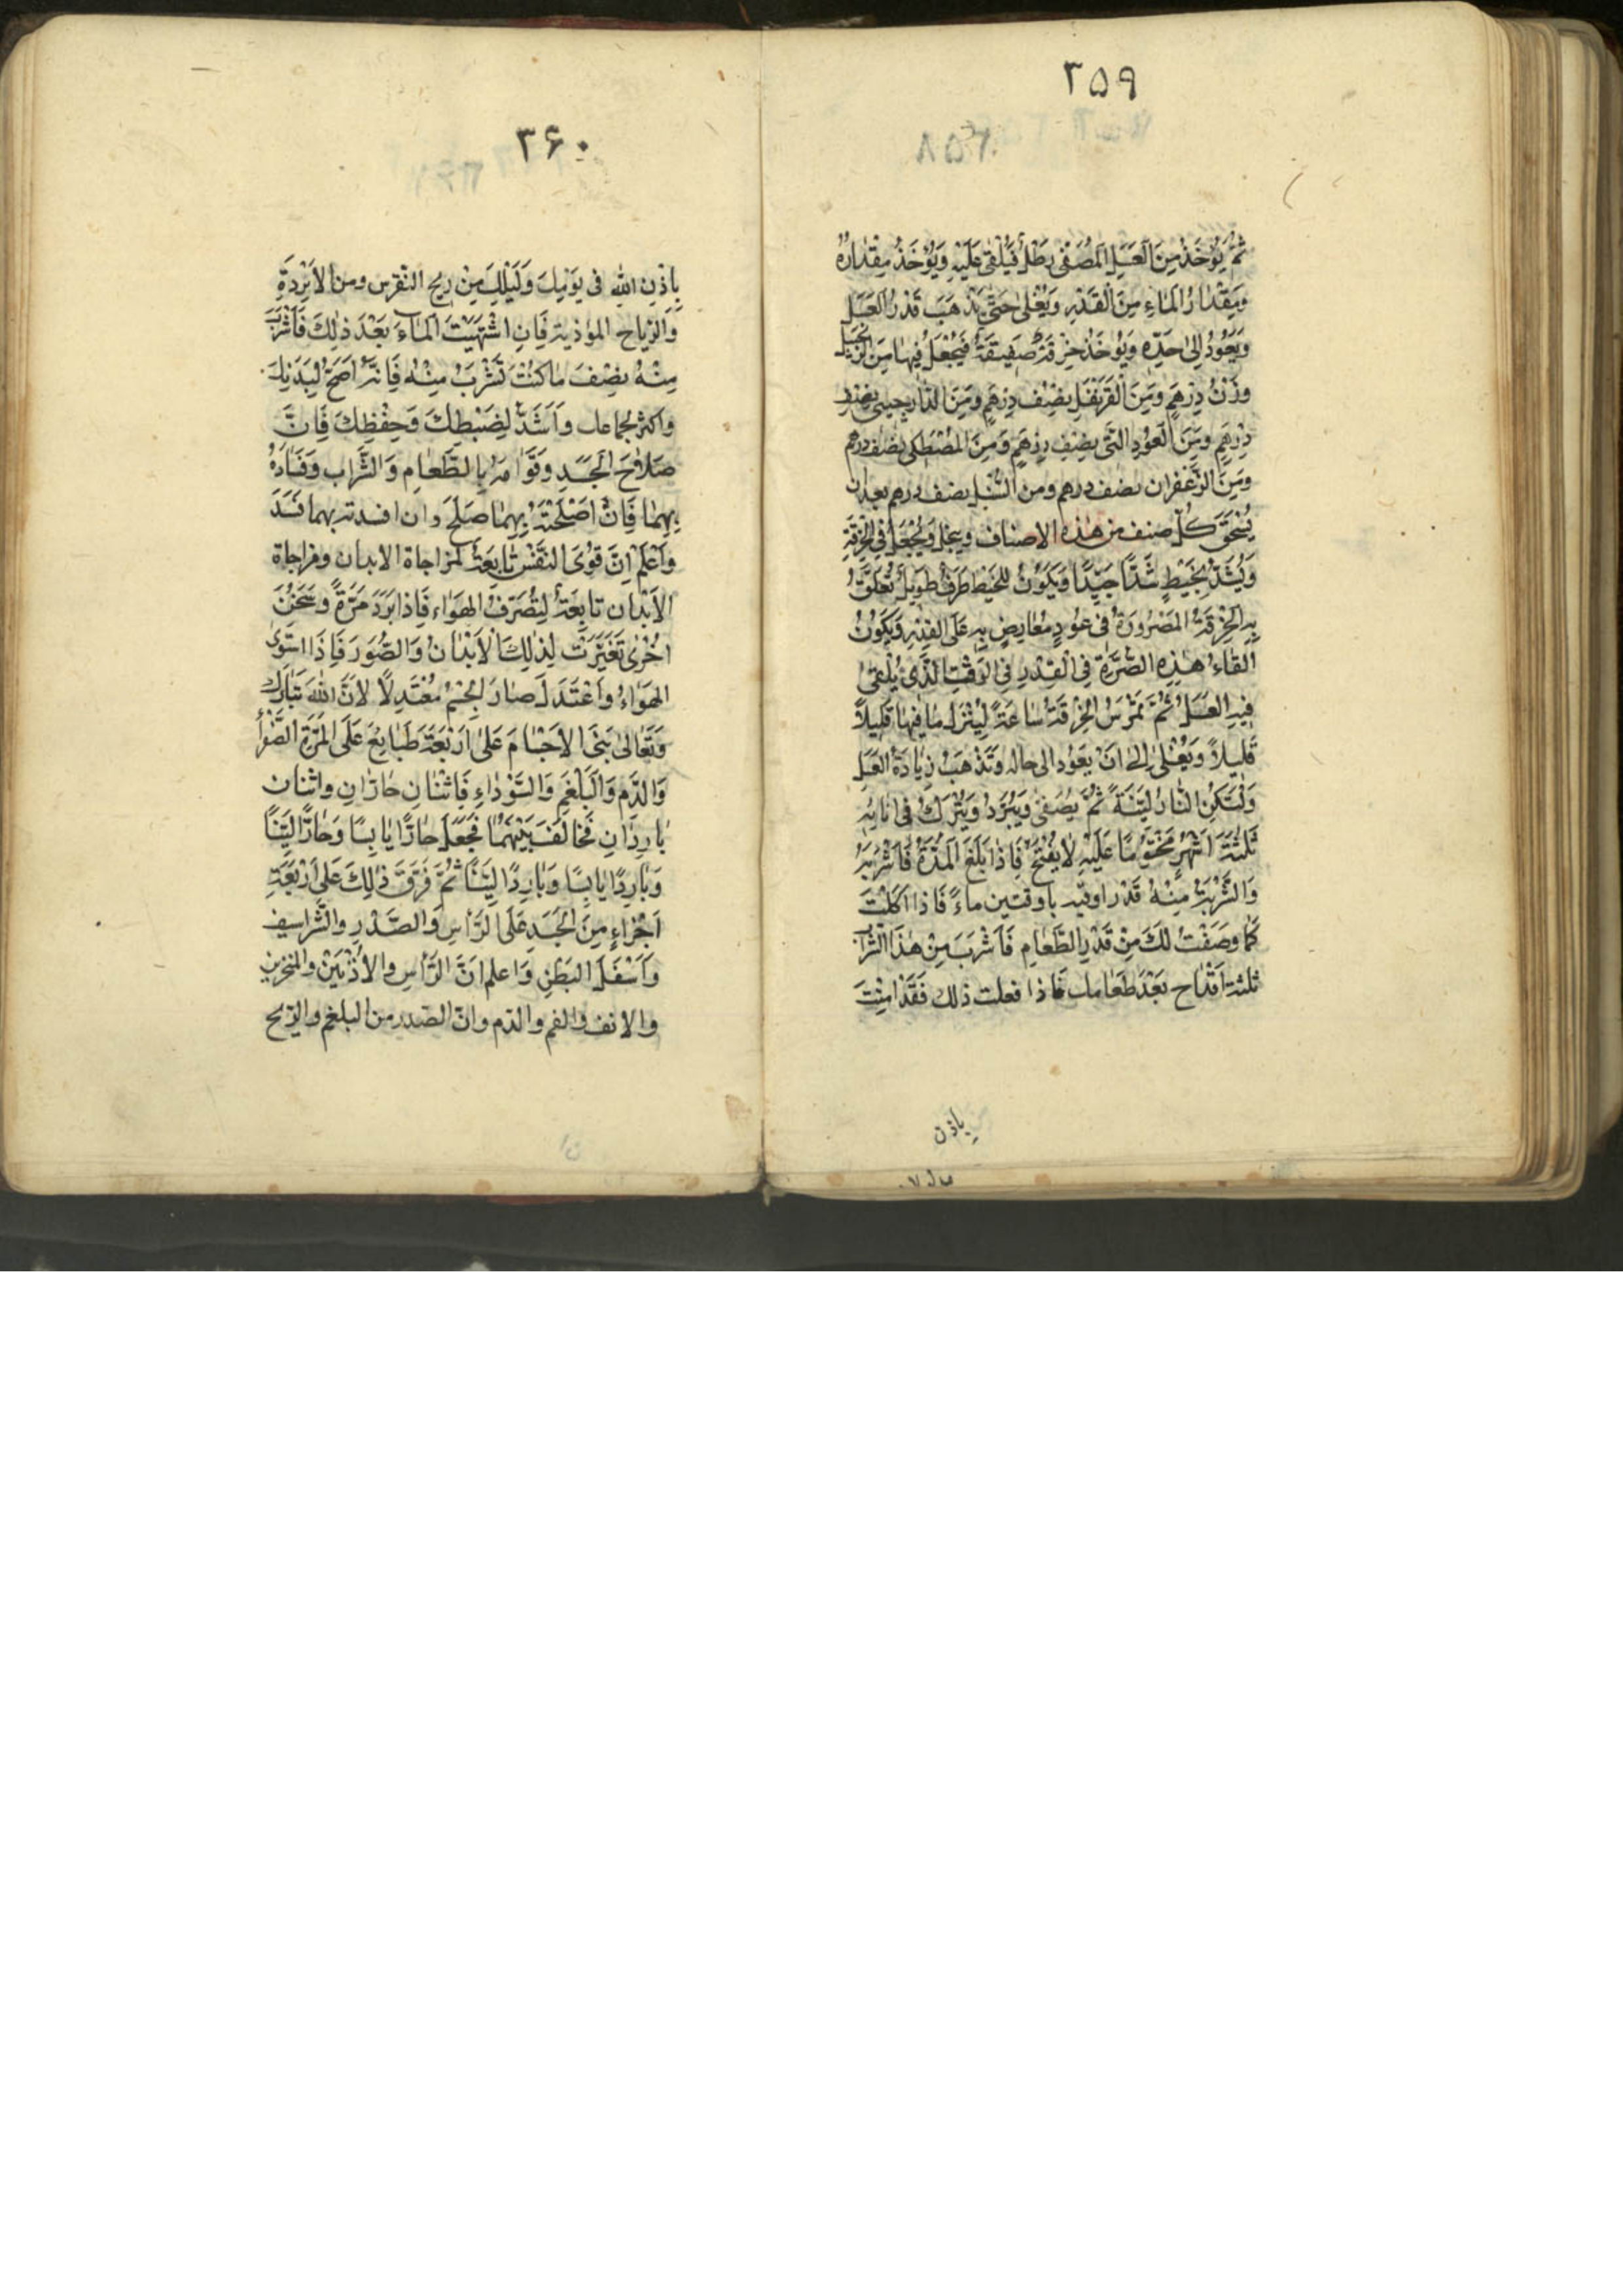 ٣٥٩
ثُمَّ يُؤخَذُ مِنَ العَسَلِ المُصَفّى رطلٌ فَيُلقى عَلَيْهِ وَيُؤخَذُ مِقْدارُهُ
وَمِقْدارُ الماءِ مِنَ القَدْرِ وَيُغْلى حَتّى يَذهَبَ قَدْرُ العَسَلِ
وَيَعُودُ إلى حَدِّهِ وَيُؤخَذُ خِرقَةٌ صَفيقَةٌ فَيُجْعَلُ فيها مِنَ الزنجبيل
وَزْنُ دِرْهَمٍ وَمِنَ القَرَنْفُلِ نِصْفُ دِرْهَمٍ وَمِنَ الدارچيني نِصفُ
دِرْهَمٍ وَمِنَ العُودِ النَّى نِصفِ دِرْهَمٍ وَمِنَ المُصْطَكى نِصْف درهم
وَمِنَ الزَّعْفَران نصف درهم ومن السُّنْبُلِ نصف درهم بعد ان
يُسْحَقَ كُلّ صنف من هذه الاصناف وينخل وَيُجْعَلُ فِي الخِرْقَةِ
وَيُشَدُّ بِخَيْطٍ شَدًّا جَيِّدًا وَيَكُونُ لِلخَيْطِ طَرَفٌ طَويلٌ تُعَلَّقُ
بِهِ الخِرْقَةُ المَصْرُورَةُ فى عُودٍ مُعارِضٍ بِهِ عَلَى القِدْرِ وَيَكُونُ
القاءُ هذِهِ الصُّرَّةِ فِي القِدْرِ فِي الوَقْتِ الَّذى يُلْقى
فيهِ العَسَلُ ثُمَّ تَمْرُسُ الخِرْقَةُ ساعَةً لِيَنْزِلَ ما فيها قَليلاً
قَليلاً وَيُغْلى إلى انْ يَعُودَ الى حاله وَتَذْهَبَ زِيادَةُ العَسَلِ
وَلْتَكُنِ النّارُ لَيِّنَةً ثُمَّ يُصَفّى وَيُبَرَّدُ وَيُتْرَكُ فى انائِهِ
ثَلثَةَ اَشْهُرٍ مَخْتُومًا عَلَيْهِ لا يُفْتَحُ فَاِذا بَلَغَ المُدَّةُ فَاشْرَبْهُ
وَالشَّرْبَةُ مِنْهُ قَدْر اوقيه باوقتين ماءً فَاذا اكَلْتَ
كَما وَصَفْتُ لَكَ مِنْ قَدْرِ الطَّعامِ فَاشْرَبَ مِنْ هذَا الشَّراب
ثلثة اقداح بَعْدَ طَعامك فاذا فعلت ذلك فَقَدْ امِنْتَ
باذن
٣۶٠
بِاذْنِ اللهِ فى يَوْمِكَ وَلَيْلَتِكَ مِنْ ريحِ النّقرس ومن الاَبْرِدَةِ
وَالرّياحِ الموذية فَانِ اشْتَهَيْتَ الماءَ بَعْدَ ذلِكَ فَاشْرَبْ
مِنْهُ نِصْفَ ما كُنْتَ تَشْرَبُ مِنْهُ فَانَّهُ اَصَحّ لِبَدَنِكَ
وَاَكْثر لجماعك واَشَدُّ لِضَبْطِكَ وَحِفْظِكَ فَانَّ
صَلاحَ الجَسَدِ وَقَوامَهُ بِالطَّعامِ وَالشَّراب وَفَسادَهُ
بِهِما فَانْ اَصْلَحْتَهُ بِهِما صَلَحَ وان افسدته بهما فَسَدَ
وَاعْلَمْ انَّ قُوَى النَّفْسِ تابِعَةٌ لمزاجاة الابدان ومزاجاة
الاَبْدان تابِعَةٌ لِتُصَرّفِ الهَواءِ فَاِذا بَرَدَ مَرَّةً وسَخُنَ
اُخْرى تَغَيَّرَتْ لِذلِكَ الاَبْدانُ وَالصُّوَر فَاِذَا اسْتَوى
الهَواءُ واعْتَدَلَ صارَ الجِسْمُ مُعْتَدِلًا لاَنَّ اللهَ تَبارَكَ
وَتَعالى بَنَى الاَجْسامَ عَلى اَرْبَعَةِ طَبايِعَ عَلَى المَرَّةِ الصَّفْراءِ
وَالدَّمِ وَالبَلْغَمِ وَالسَّوْداءِ فَاثْنانِ حارّانِ واثنان
بارِدانِ فَخالَفَ بَيْنَهُما فَجَعَلَ حارًّا يابِسًا وَحارًّا لَيِّنًا
وَبارِدًا يابِسًا وَبارِدًا لَيِّنًا ثُمَّ فَرَّقَ ذلِكَ عَلى اَرْبَعَةِ
اَجْزاءٍ مِنَ الجَسَدِ عَلَى الرَّأسِ وَالصَّدْرِ والشَّراسيف
وَاَسْفَلِ البَطْنِ وَاعلم انَّ الرَّأسَ والاُذُنَيْنِ والمنخرين
والانف والفم والدّم وانّ الصّدر من البلغم والرّيح